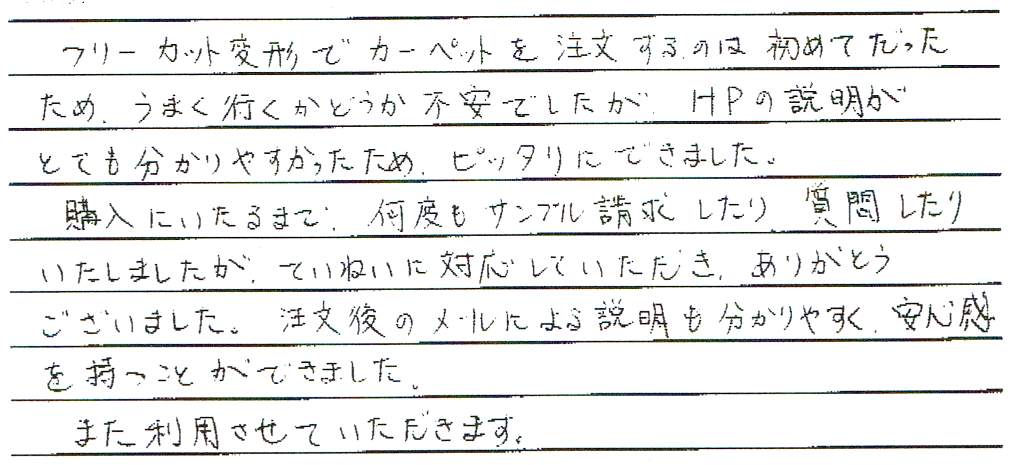 フリーカット変形でカーペットを注文するのは初めてだった
ため、うまく行くかどうか不安でしたが、HPの説明が
とても分かりやすかったため、ピッタリにできました。
購入にいたるまで、何度もサンプル請求したり質問したり
いたしましたが、ていねいに対応していただき、ありがとう
ございました。注文後のメールによる説明も分かりやすく、安心感
を持つことができました。
また利用させていただきます。